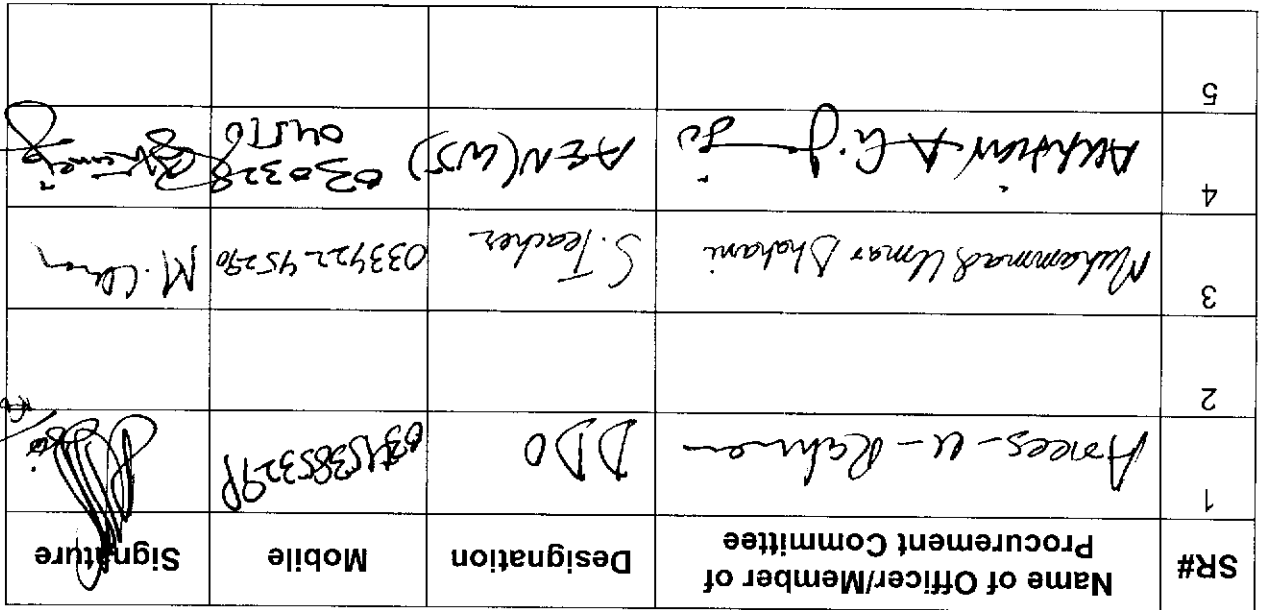 SR# Name of Officer/Member of Procurement Committee Designation Mobile Signature
1 Anees-u-Rahman DDO
2
3 Muhammad Umar Dhahani S. Teacher 03342245290 M. Umar
4 AEN(WS) 0303328 04570
5